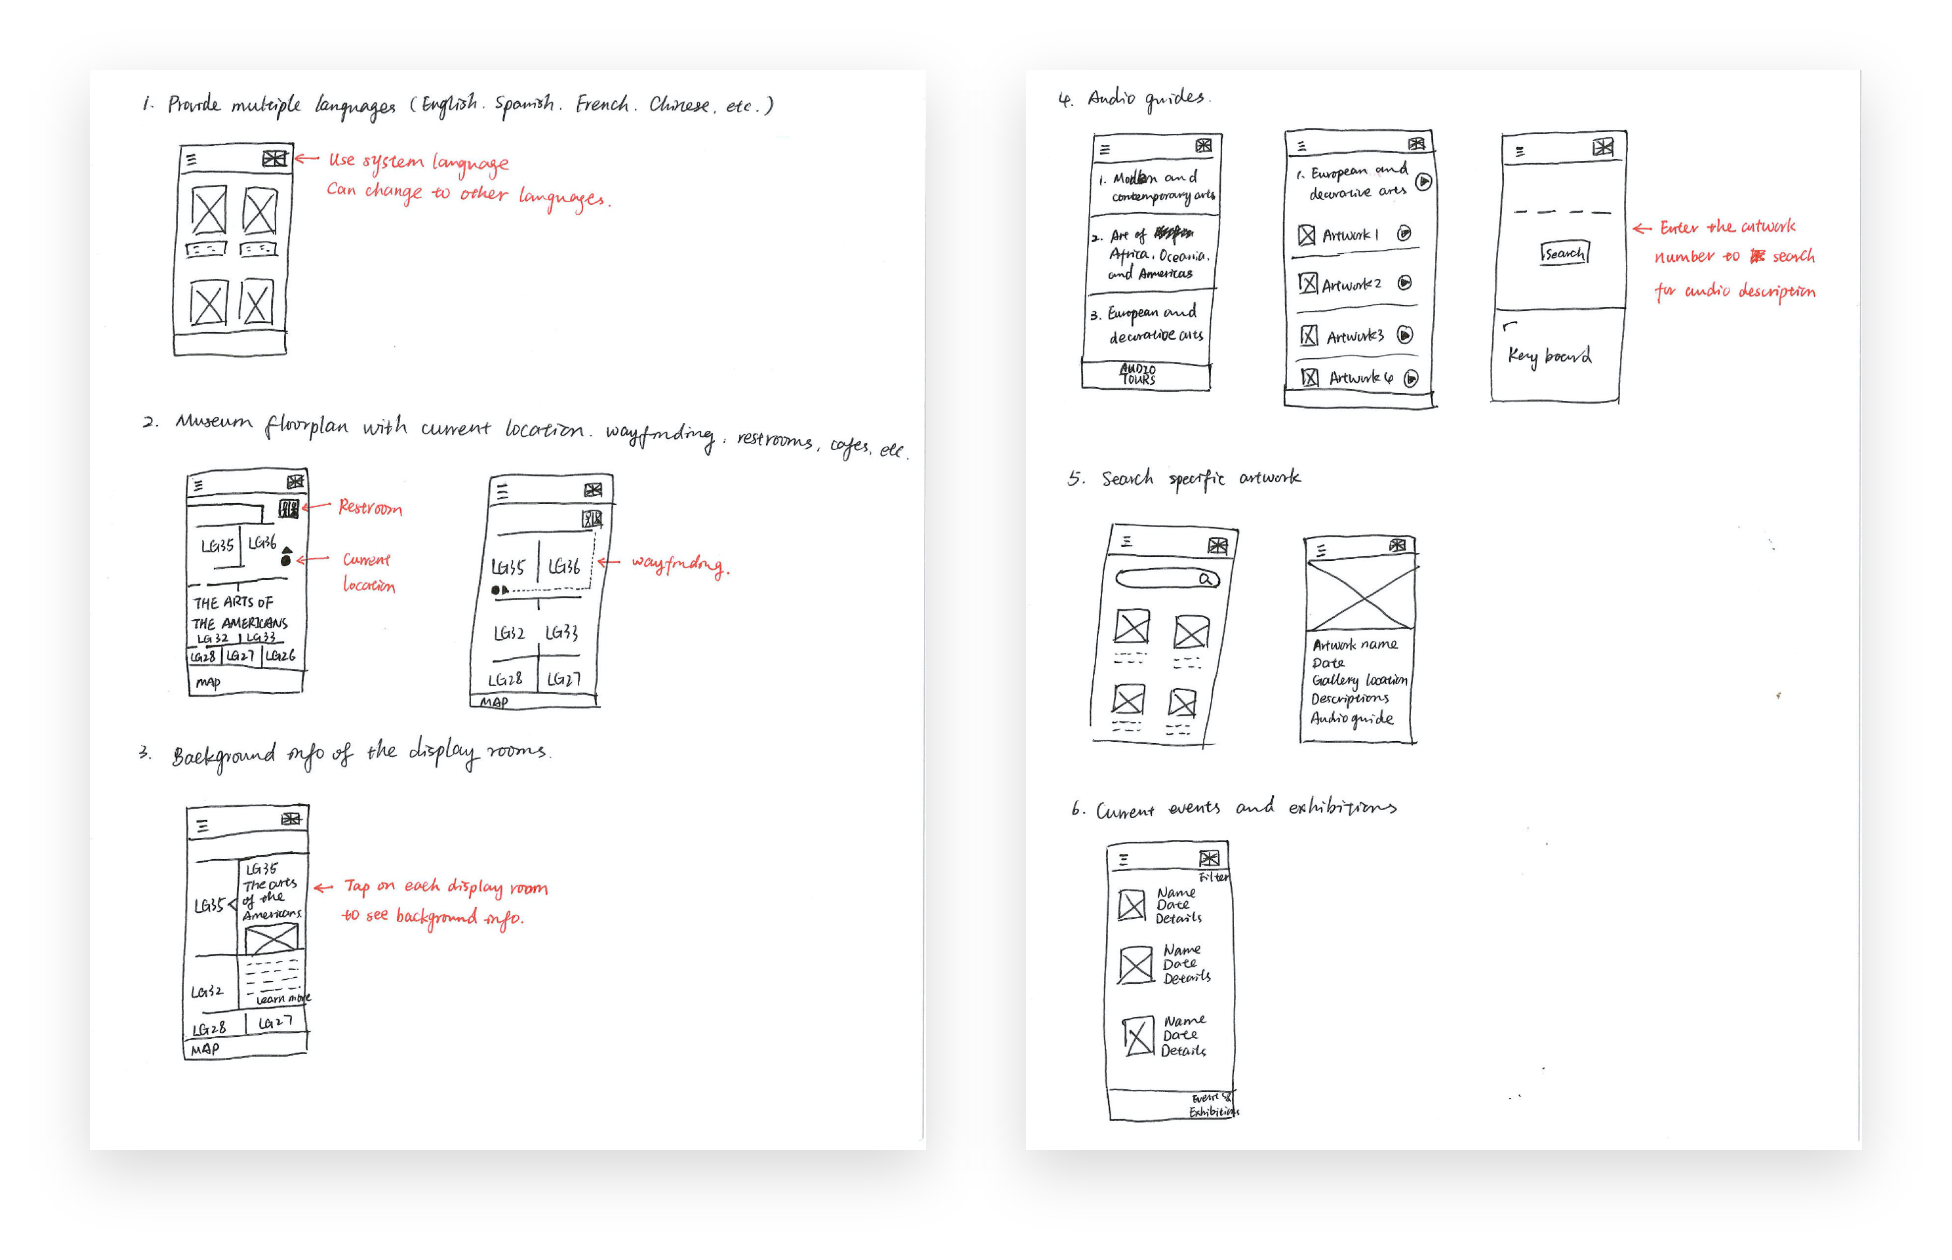 1. Provide multiple languages (English. Spanish. French. Chinese. etc.)
← Use system language
Can change to other languages.
2. Museum floorplan with current location. wayfinding. restrooms, cafes, etc.
LG35 LG36
← Restroom
← Current
location
THE ARTS OF
THE AMERICANS
LG32 LG33
LG28 LG27 LG26
MAP
LG35 LG36
← wayfinding.
LG32 LG33
LG28 LG27
MAP
3. Background info of the display rooms.
LG35
The arts
of the
Americans
LG35
Learn more
LG32
LG28 LG27
MAP
← Tap on each display room
to see background info.
4. Audio guides.
1. Modern and
contemporary arts
2. Art of
Africa, Oceania,
and Americas
3. European and
decorative arts
AUDIO
TOURS
1. European and
decorative arts
Artwork 1
Artwork 2
Artwork 3
Artwork 4
Search
Keyboard
← Enter the artwork
number to search
for audio description
5. Search specific artwork
Artwork name
Date
Gallery location
Descriptions
Audio guide
6. Current events and exhibitions
Filter
Name
Date
Details
Name
Date
Details
Name
Date
Details
Event &
Exhibitions